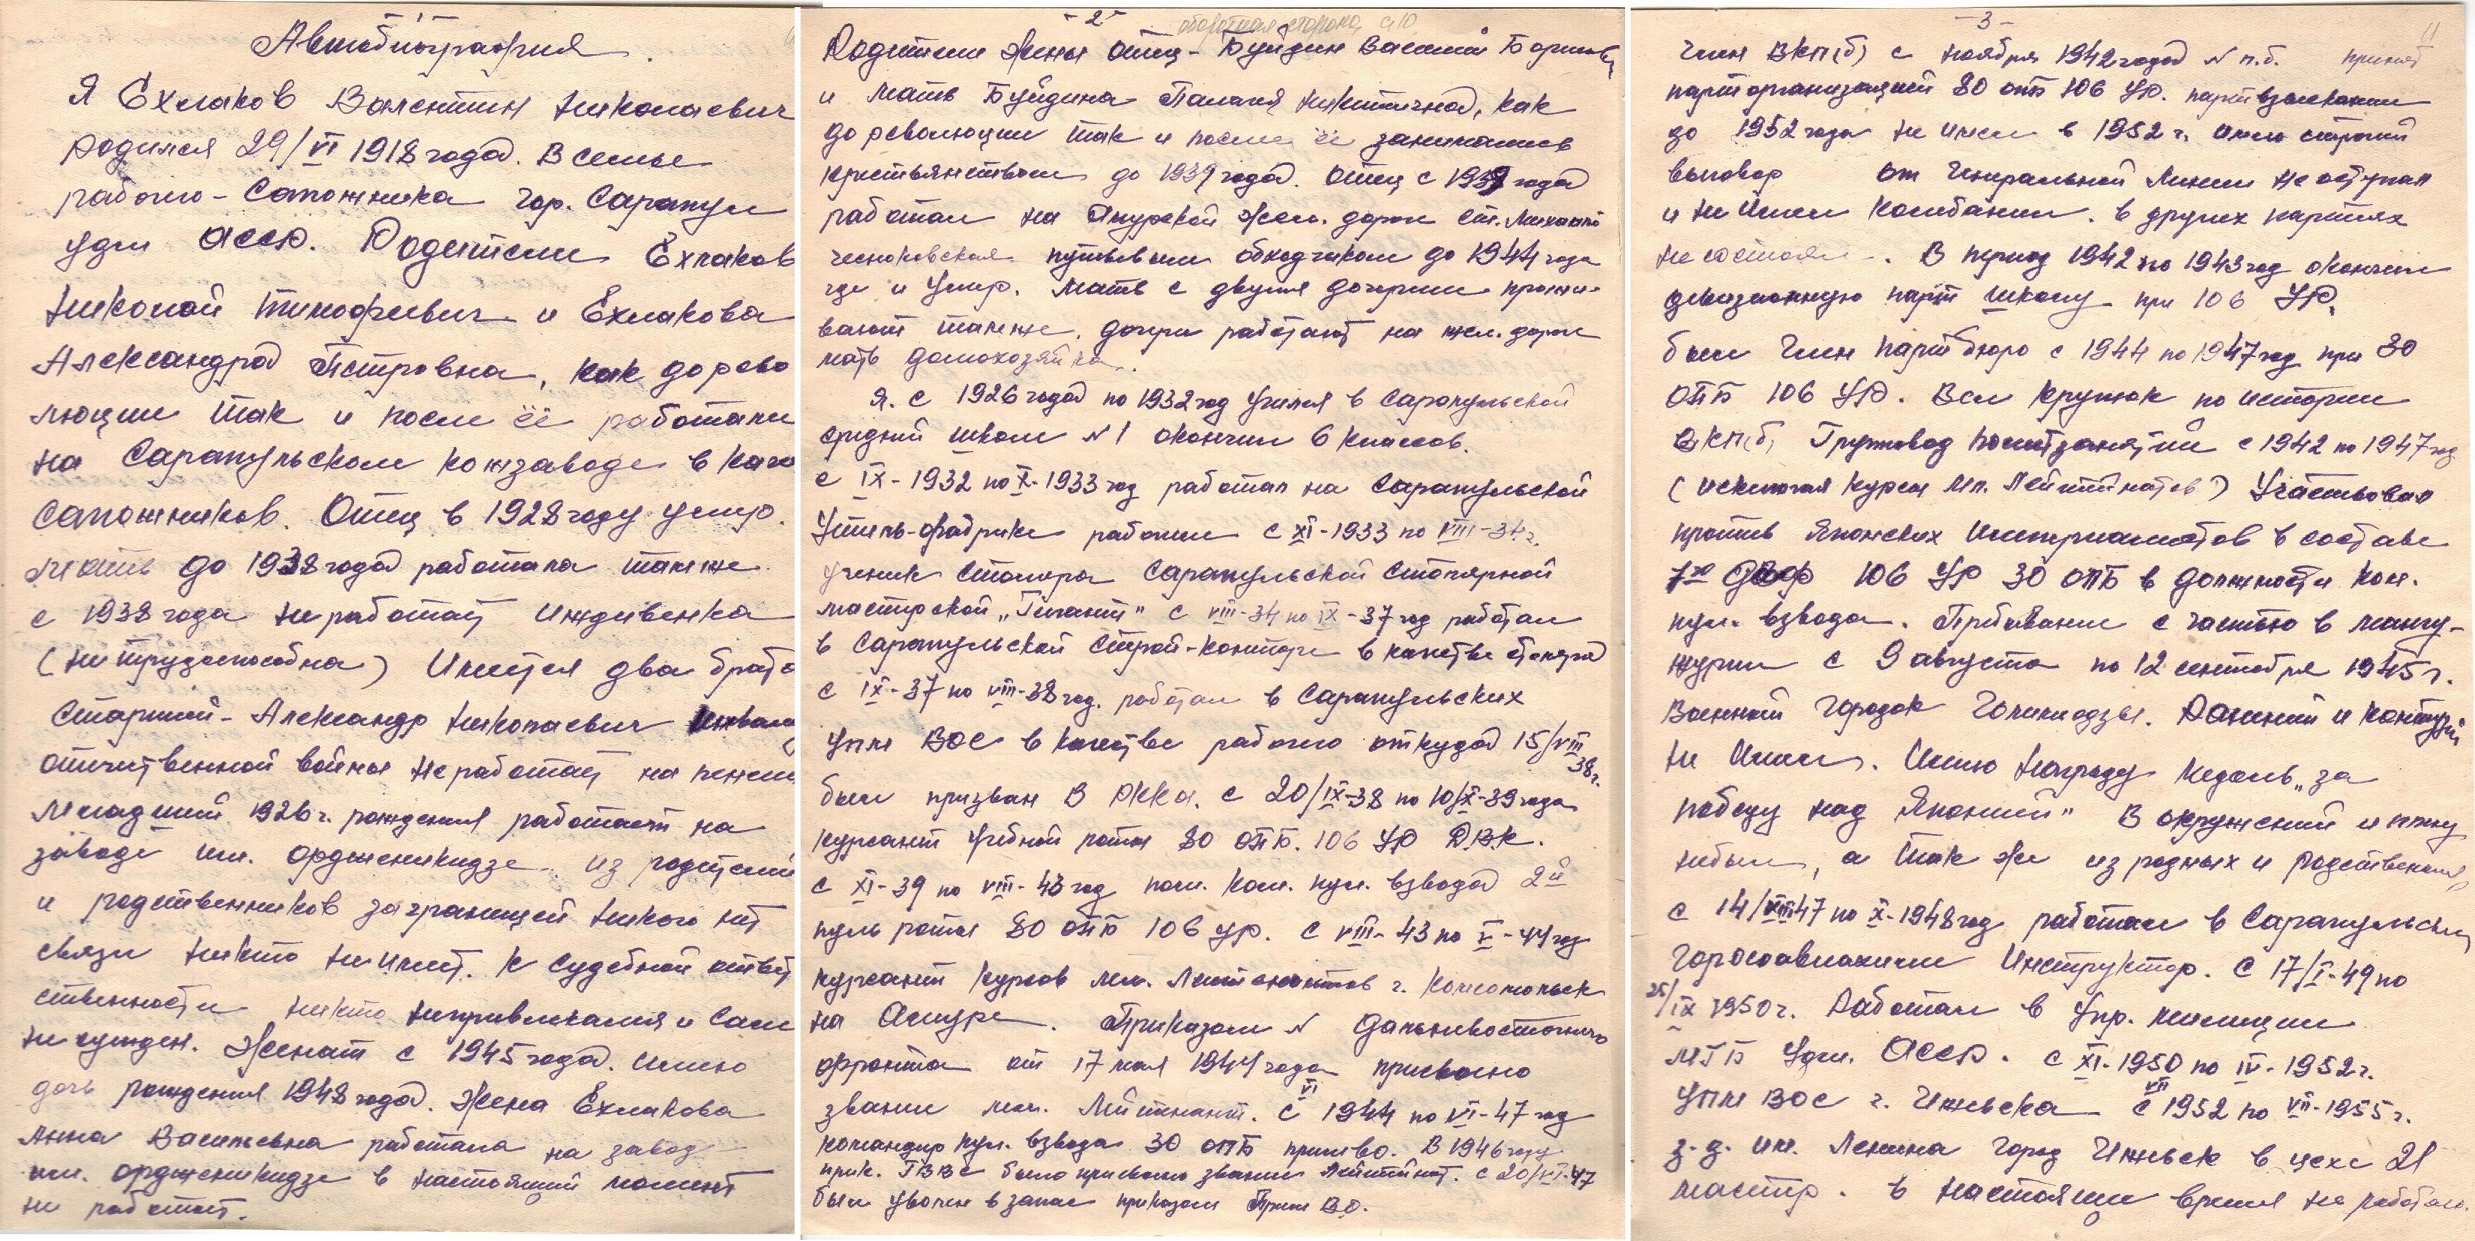 Автобиография.
Я Ехлаков Валентин Николаевич
родился 29/VI 1918 года. В семье
рабочего-Сапожника гор. Сарапул
Удм АССР. Родители Ехлаков
Николай Тимофеевич и Ехлакова
Александра Петровна, как до рево
люции так и после её работали
на Сарапульском кожзаводе в каче
сапожников. Отец в 1928 году умер.
Мать до 1938 года работала там же.
с 1938 года не работает иждивенка
(не трудоспособна) Имеется два брата
Старший - Александр Николаевич инвалид
отечественной войны не работает на пенсии
Младший 1926 г. рождения работает на
заводе им. Орджоникидзе. из родителей
и родственников заграницей никого нет
связи никто не имеет. К судебной ответ
ственности никто не привлекался и сам
не сужден. Женат с 1945 года. имею
дочь рождения 1948 года. Жена Ехлакова
Анна Васильевна работала на завод
им. Орджоникидзе в настоящий момент
не работает.
-2-
оборотная сторона с 10
Родители жены отец - Буйдин Василий Борисов
и мать Буйдина Палагея Никитична, как
до революции так и после её занимались
крестьянством до 1939 года. Отец с 1939 года
работал на Амурской жел. дороге ст. Михайло
чесноковская путевым обходчиком до 1944 года
где и умер. Мать с двумя дочерми прожи-
вают там же. дочери работают на жел. дороге
мать домохозяйка.
Я. с 1926 года по 1932 год учился в Сарапульской
средней школе №1 окончил 6 классов.
с IX-1932 по X-1933 год работал на Сарапульской
Утиль-фабрике рабочим с XI-1933 по VIII-34 г.
ученик столяра Сарапульской столярной
мастерской „Гигант" с VIII-34 по IX-37 год работал
в Сарапульской Строй-конторе в качестве столяра
с IX-37 по VIII-38 год. работал в Сарапульских
УПМ ВОС в качестве рабочего откуда 15/VIII 38 г.
был призван в РККА. с 20/IX-38 по 10/X-39 года
курсант учебной роты 80 ОПБ. 106 УР Д.В.К.
с XI-39 по VIII-43 год пом. ком. пул. взвода 2й
пуль роты 80 ОПБ 106 УР. с VIII-43 по V-44 год
курсант курсов мл. Лейтенантов г. Комсомольск
на Амуре. Приказом № Дальневосточного
фронта от 17 мая 1944 года присвоено
звание мл. Лейтенант. с VI 1944 по VI-47 год
командир пул. взвода 30 ОПБ примво. В 1946 году
прик. было присвоено звание Лейтенант. с 20/VI-47
был уволен в запас приказом Прим ВО.
-3-
11
член ВКП(б) с ноября 1942 года № п.б. принят
парторганизацией 80 опб 106 УР. партвзыскании
до 1952 года не имел в 1952 г. имею строгий
выговор от генеральной линии не отступал
и не имел колебании. в других партиях
не состоял. В период 1942 по 1943 год окончил
дивизионную парт школу при 106 УР.
был член партбюро с 1944 по 1947 год при 30
ОПБ 106 УР. Вел кружок по истории
ВКП(б) Групповод политзанятий с 1942 по 1947 год
(исключая курсы мл. Лейтинатов) Участвовал
против Японских Империалистов в составе
106 УР 30 ОПБ в должности ком.
пул. взвода. Пребывание с частью в манчу-
журии с 9 августа по 12 сентября 1945 г.
Военный городок Ранений и контузий
не имел. Имею награду медаль „за
победу над Японией" В окружении и плену
небыл, а так же из родных и родственников
с 14/VIII 47 по X-1948 год работал в Сарапульском
горосоавиахиме Инструктор. С 17/I-49 по
25/IX 1950 г. Работал в Упр. милиции
МГБ Удм. АССР. с XI-1950 по IV-1952 г.
УПМ ВОС г. Ижевска с VII 1952 по VII-1955 г.
з-д. им. Ленина город Ижевск в цехе 21
мастер. в настоящее время не работаю.